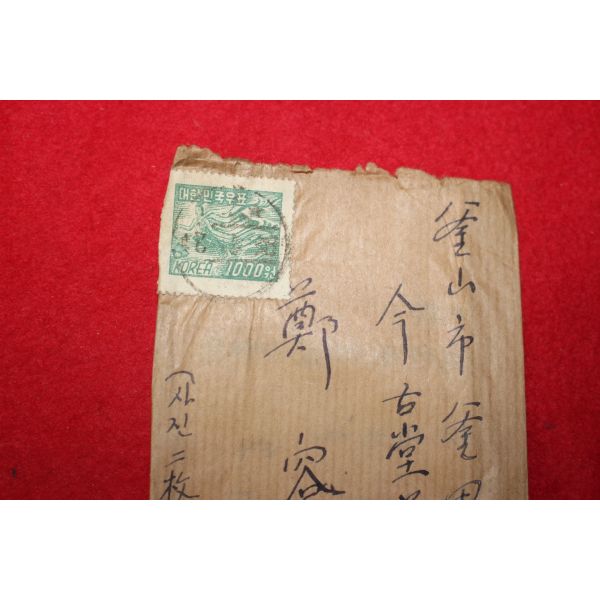 대한민국우표
KOREA 1000원
釜山市 釜田
今古堂
鄭容
(사진 二枚